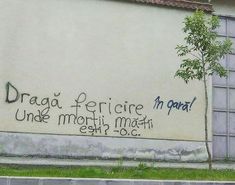 Dragă fericire
în gară!
Unde morții mă-tii
ești? -O.C.